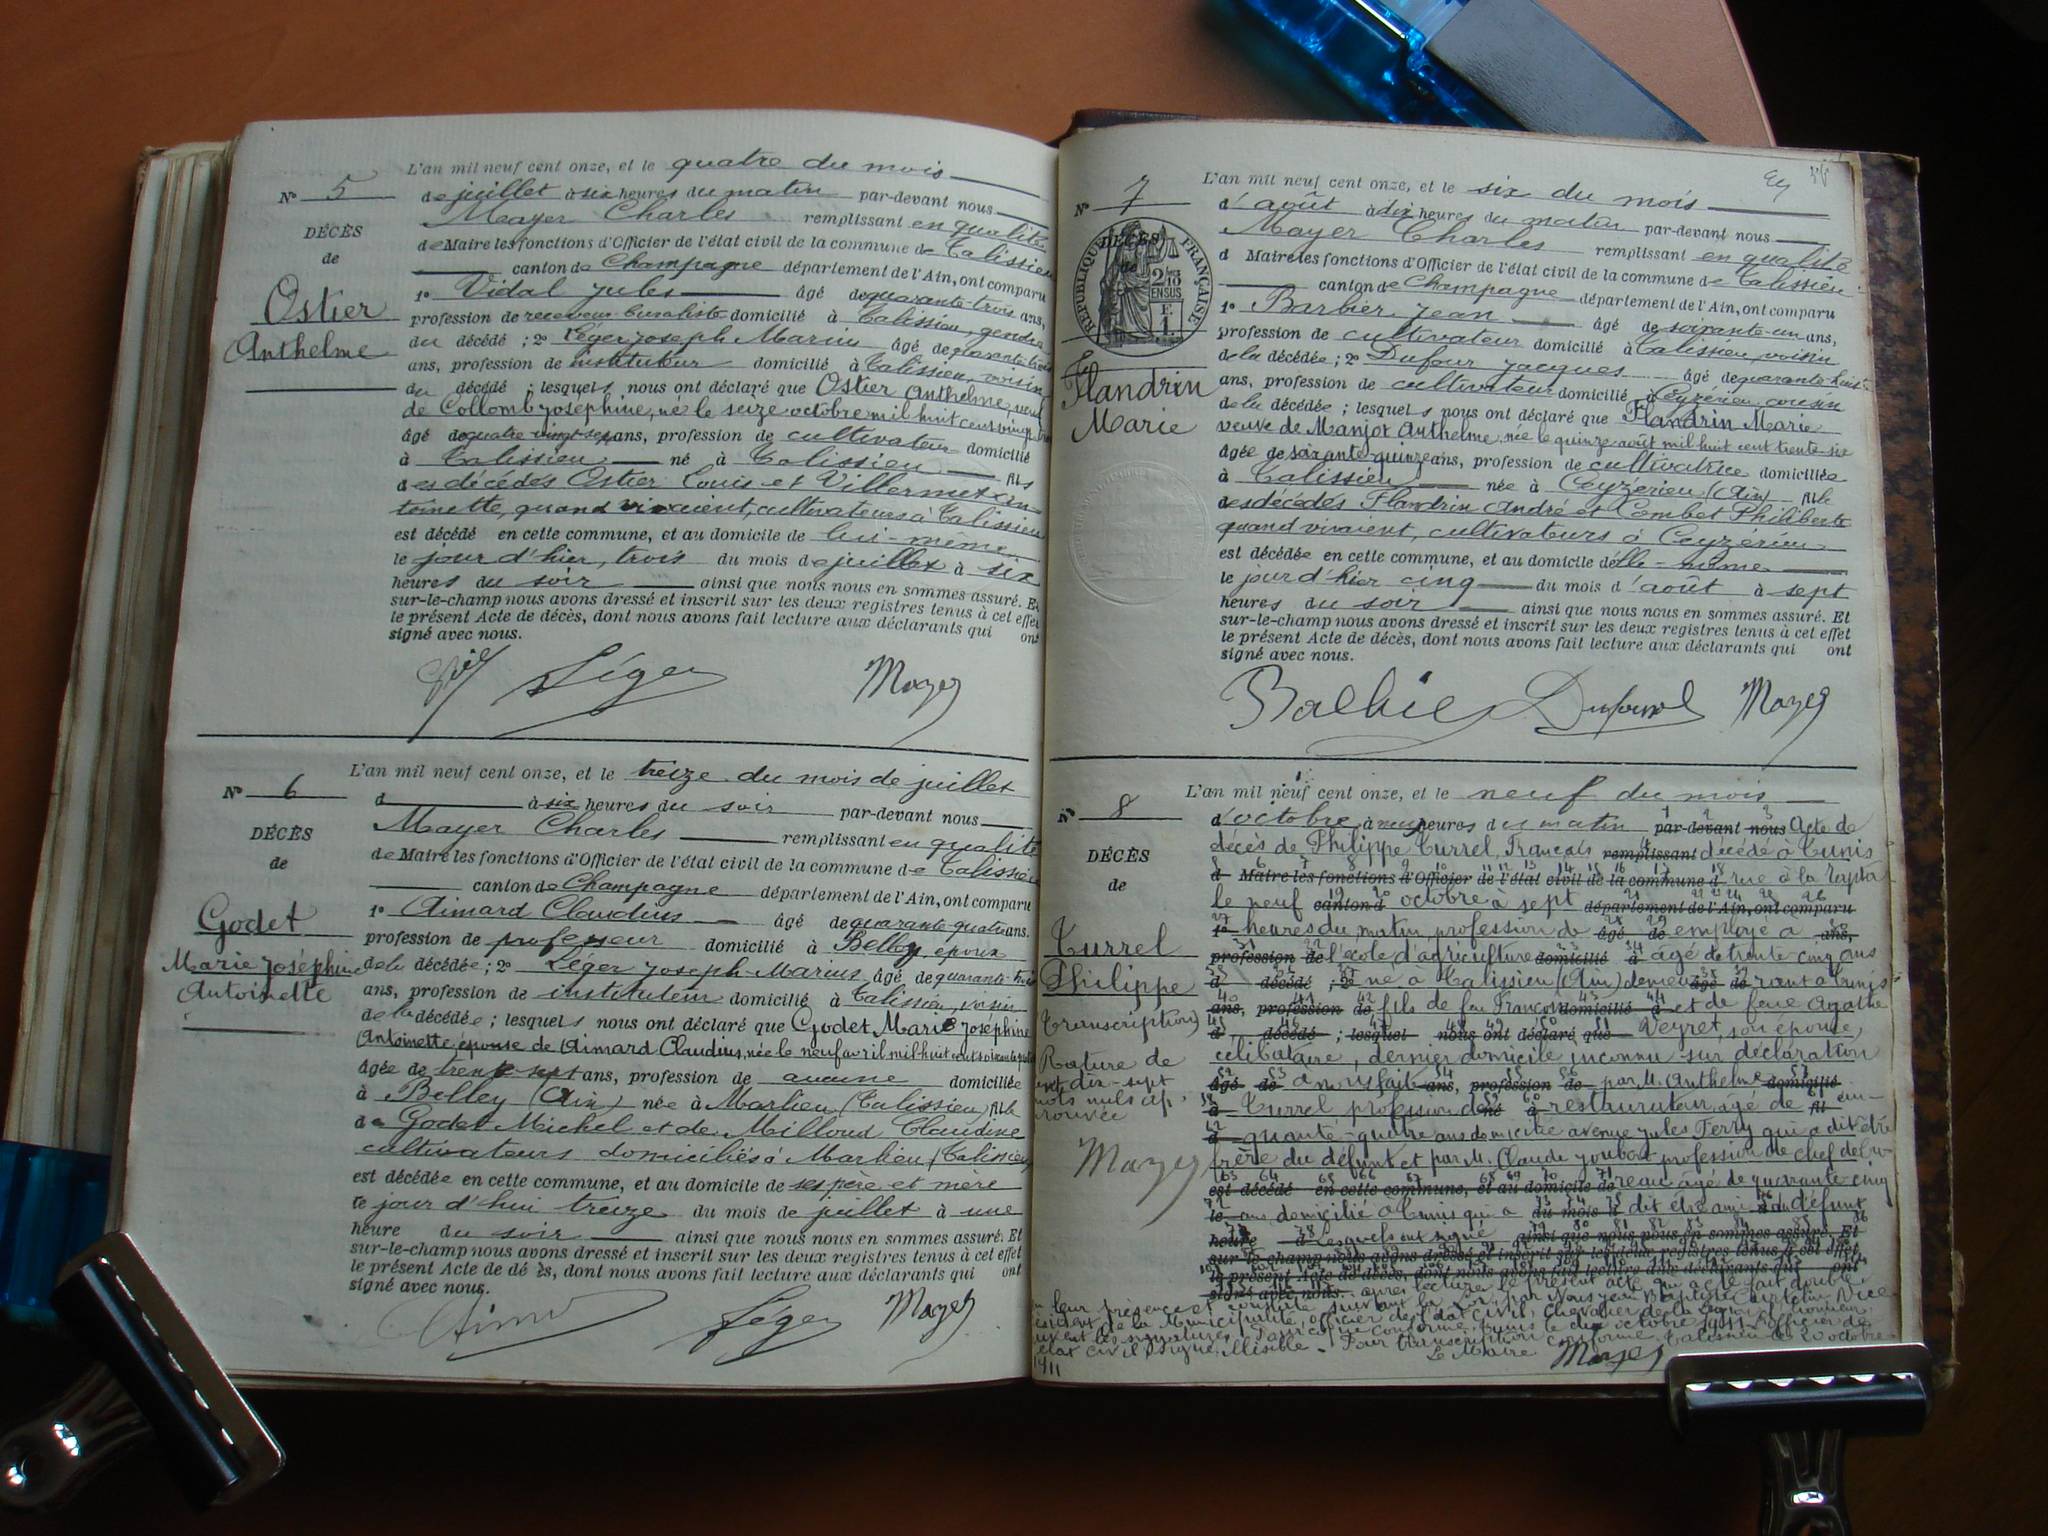 L'an mil neuf cent onze, et le quatre du mois
N° 5
de juillet à six heures du matin par-devant nous
DÉCÈS
de
Ostier
Anthelme
Mayer Charles remplissant en qualité
de Maire les fonctions d'Officier de l'état civil de la commune de Talissieu
canton de Champagne département de l'Ain, ont comparu
1° Vidal Jules âgé de quarante-trois ans,
profession de receveur buraliste domicilié à Talissieu, gendre
du décédé ; 2° Léger Joseph Marius âgé de quarante trois
ans, profession de instituteur domicilié à Talissieu, voisin
du décédé ; lesquels nous ont déclaré que Ostier Anthelme, veuf
de Collomb Joséphine, né le seize octobre mil huit cent vingt trois
âgé de quatre vingt sept ans, profession de cultivateur domicilié
à Talissieu né à Talissieu fils
des décédés Ostier Louis et Villermet An-
toinette, quand vivaient, cultivateurs à Talissieu
est décédé en cette commune, et au domicile de lui-même
le jour d'hier, trois du mois de juillet à six
heures du soir ainsi que nous nous en sommes assuré. Et
sur-le-champ nous avons dressé et inscrit sur les deux registres tenus à cet effet
le présent Acte de décès, dont nous avons fait lecture aux déclarants qui ont
signé avec nous.
Léger Mayer
L'an mil neuf cent onze, et le treize du mois de juillet
N° 6
d à six heures du soir par-devant nous
DÉCÈS
de
Godet
Marie Joséphine
Antoinette
Mayer Charles remplissant en qualité
de Maire les fonctions d'Officier de l'état civil de la commune de Talissieu
canton de Champagne département de l'Ain, ont comparu
1° Aimard Claudius âgé de quarante quatre ans.
profession de professeur domicilié à Belley époux
de la décédée ; 2° Léger Joseph-Marius âgé de quarante trois
ans, profession de instituteur domicilié à Talissieu, voisin
de la décédée ; lesquels nous ont déclaré que Godet Marie Joséphine
Antoinette épouse de Aimard Claudius, née le neuf avril mil huit cent soixante quatorze
âgée de trente sept ans, profession de aucune domiciliée
à Belley (Ain) née à Marlieu (Talissieu) fille
de Godet Michel et de Milloud Claudine
cultivateurs domiciliés à Marlieu (Talissieu)
est décédée en cette commune, et au domicile de ses père et mère
le jour d'hui treize du mois de juillet à une
heure du soir ainsi que nous nous en sommes assuré. Et
sur-le-champ nous avons dressé et inscrit sur les deux registres tenus à cet effet
le présent Acte de décès, dont nous avons fait lecture aux déclarants qui ont
signé avec nous.
Léger Mayer
L'an mil neuf cent onze, et le six du mois
N° 7
d'août à six heures du matin par-devant nous
DÉCÈS
de
RÉPUBLIQUE FRANÇAISE
Flandrin
Marie
Mayer Charles remplissant en qualité
d Maire les fonctions d'Officier de l'état civil de la commune de Talissieu
canton de Champagne département de l'Ain, ont comparu
1° Barbier Jean âgé de soixante-un ans,
profession de cultivateur domicilié à Talissieu, voisin
de la décédée ; 2° Dufour Jacques âgé de quarante-huit
ans, profession de cultivateur domicilié à Ceyzérieu, cousin
de la décédée ; lesquels nous ont déclaré que Flandrin Marie
veuve de Manjot Anthelme, née le quinze août mil huit cent trente six
âgée de soixante quinze ans, profession de cultivatrice domiciliée
à Talissieu née à Ceyzérieu (Ain) fille
des décédés Flandrin André et Combet Philiberte
quand vivaient, cultivateurs à Ceyzérieu
est décédée en cette commune, et au domicile d'elle-même
le jour d'hier cinq du mois d'août à sept
heures du soir ainsi que nous nous en sommes assuré. Et
sur-le-champ nous avons dressé et inscrit sur les deux registres tenus à cet effet
le présent Acte de décès, dont nous avons fait lecture aux déclarants qui ont
signé avec nous.
Mayer
L'an mil neuf cent onze, et le neuf du mois
N° 8
d'octobre à neuf heures du matin par-devant nous Acte de
DÉCÈS
de
Turrel
Philippe
(Transcription)
Rature de
cent dix-sept
mots nuls
Mayer
décès de Philippe Turrel, Français remplissant décédé à Tunis
d Maire les fonctions d'Officier de l'état civil de la commune d rue à la
le neuf canton d octobre à sept département de l'Ain, ont comparu
1° heures du matin profession de âgé de employé à ans,
profession de l'école d'agriculture domicilié à âgé de trente cinq ans
d décédé ; 2° né à Talissieu (Ain) demeu âgé de rant à Tunis
ans, profession de fils de feu François domicilié à et de feue Agathe
d décédé ; lesquel nous ont déclaré que Veyret, son épouse,
célibataire, dernier domicile inconnu sur déclaration
âgé de à nous fait ans, profession de par M. Anthelme domicilié
à Turrel profession de né à restaurateur âgé de fil cin-
d quante-quatre ans domicilié avenue Jules Ferry qui a dit être
frère du défunt et par M. Claude Joubert profession de chef de bu-
est décédé en cette commune, et au domicile de reau âgé de quarante cinq
le ans domicilié à Tunis qui a du mois d dit être ami à du défunt
heure d Lesquels ont signé ainsi que nous nous en sommes assuré. Et
sur-le-champ nous avons dressé et inscrit sur les deux registres tenus à cet effet
le présent Acte de décès, dont nous avons fait lecture aux déclarants qui ont
signé avec nous. après lecture du présent acte fait double
en leur présence et constaté suivant la loi par Nous Jean Baptiste Vice
Président de la Municipalité, officier de l'état civil, Chevalier de la Légion d'Honneur
Suivent les signatures. Pour copie conforme, Tunis le dix octobre 1911 L'officier de
l'état civil Signé Illisible. Pour transcription conforme. Talissieu le 20 octobre
1911 Le Maire Mayer